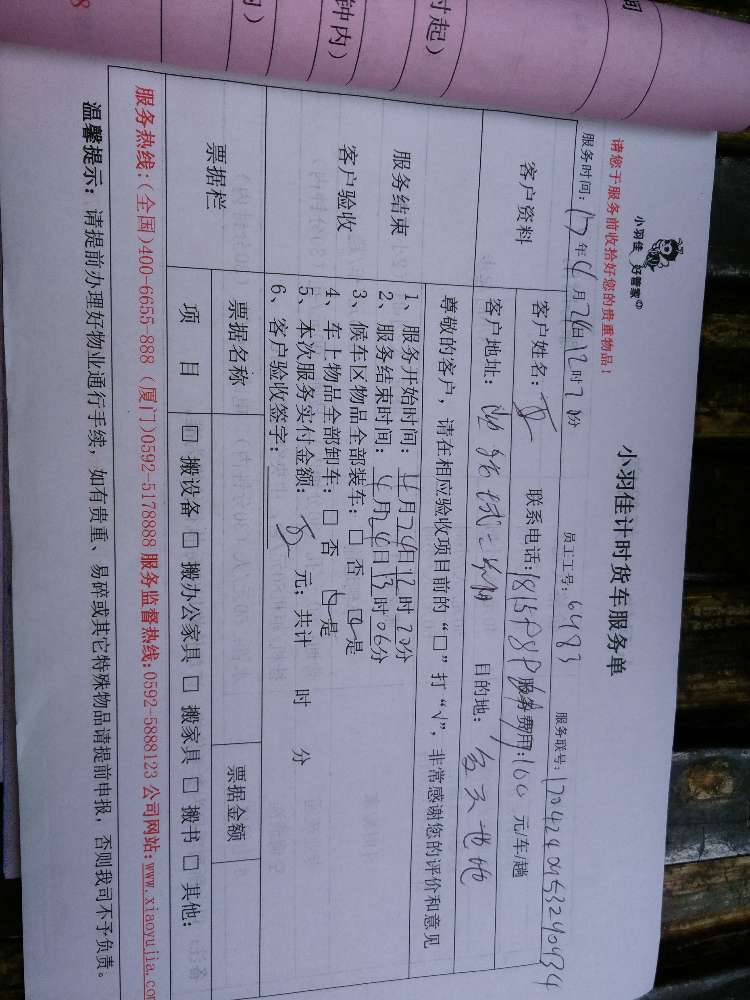 间
时起）
钟内）
小羽佳 好管家
小羽佳计时货车服务单
请您于服务前收拾好您的贵重物品！
服务时间：17年4月24日12时20分
员工工号：6483
服务联号：
客户资料
客户姓名：
联系电话：
服务费用：100 元/车/趟
客户地址：
目的地：
服务结束
客户验收
尊敬的客户，请在相应验收项目前的“□”打“√”，非常感谢您的评价和意见
1、服务开始时间：4月24日12时20分
2、服务结束时间：4月24日13时06分
3、候车区物品全部装车：□ 否 是
4、车上物品全部卸车：□ 否 是
5、本次服务实付金额： 元；共计 时 分
6、客户验收签字：
票据栏
票据名称
票据金额
项 目
□ 搬设备 □ 搬办公家具 □ 搬家具 □ 搬书 □ 其他：
服务热线：(全国)400-6655-888 (厦门)0592-5178888 服务监督热线：0592-5888123 公司网站：www.xiaoyujia.com
温馨提示： 请提前办理好物业通行手续，如有贵重、易碎或其它特殊物品请提前申报，否则我司不予负责。